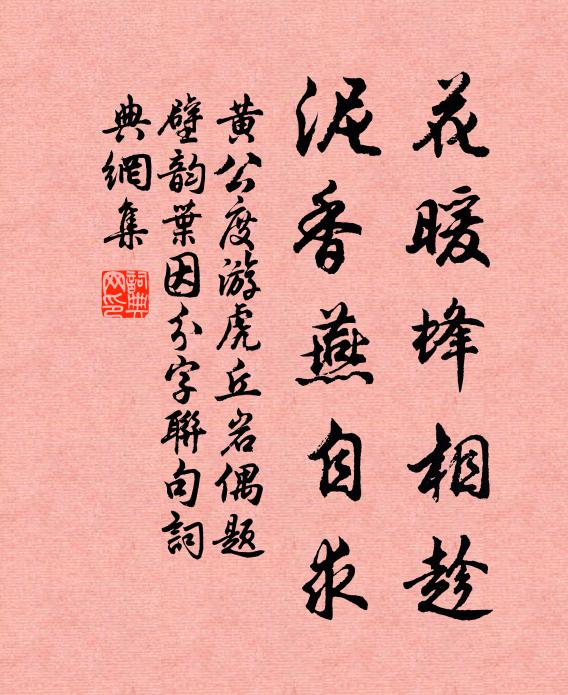 花暖蜂相趁
泥香燕自求
黄公度游虎丘岩偶题
壁韵葉因分字聯句詞
典網集
詞典
网印